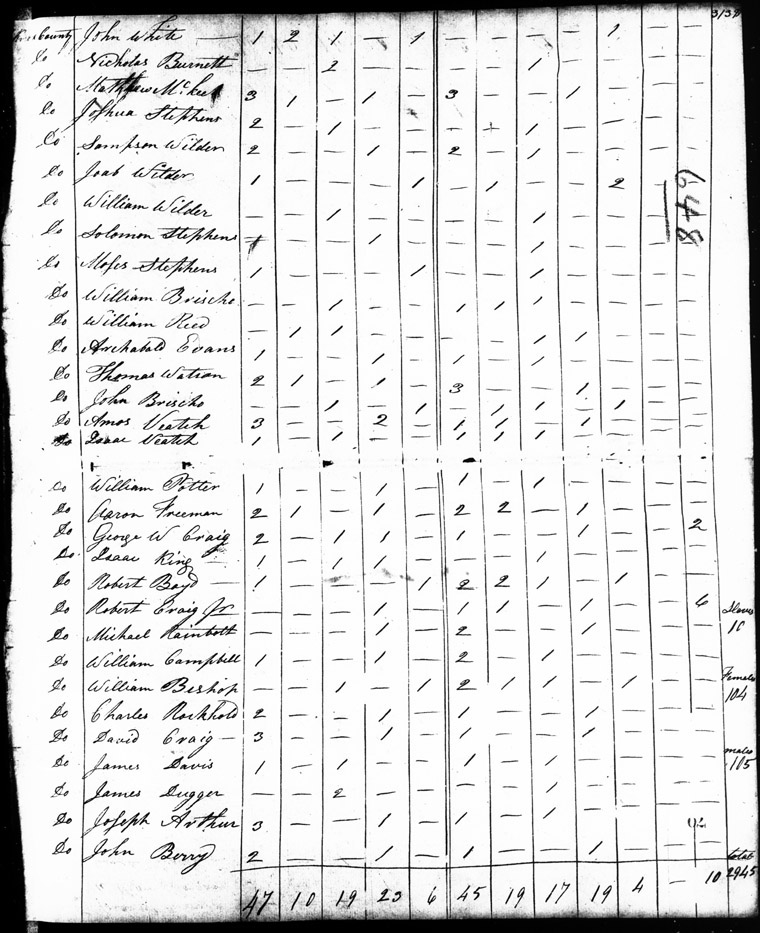 3132
County John White — 1 2 1 — 1 — — — 1 — —
Do Nicholas Burnett — — 2 — — — — 1 — — — —
Do Matthew 3 1 — 1 — 3 — — 1 — — —
Do Joshua Stephens 2 — 1 — — — + 1 — — — —
Do Sampson Wilder 2 — — 1 — 2 — 1 — — — —
Do Joab Wilder 1 — — — 1 — 1 — — 2 — —
648
Do William Wilder — — 1 — — — — 1 — — — —
Do Solomon Stephens — — 1 — — — 1 — — — —
Do Moses Stephens 1 — — — 1 — — 1 — — — —
Do William Brischo — — 1 — — 1 1 1 — — — —
Do William Reed — 1 1 — — — — 1 1 — — —
Do Archabald Evans 1 — — 1 — 1 — 1 — — — —
Do Thomas Watson 2 1 — 1 — 3 — — 1 — — —
Do John Brischo — — 1 — 1 — 1 1 — 1 — —
Do Amos Veatch 3 — — 2 — 1 1 1 1 — — —
Do Isaac Veatch 1 — 1 — — 1 1 1 — — — —
Do William Potter 1 — — 1 — 1 — 1 — — — —
Do Aaron Freeman 2 1 — 1 — 2 2 — 1 — — —
Do George W Craig 2 — 1 1 — 1 — — 1 — — 2
Do Isaac King 1 — 1 1 — — — 1 — — — —
Do Robert Boyd — 1 — — — 1 2 2 1 — 1 — —
Do Robert Craig Jr — — — 1 — 1 1 — 1 — — 6
Slaves
Do Michael Rainbolt — — — 1 — 2 — — 1 — — —
Do William Campbell 1 — — 1 — 2 — 1 — — — —
Females
Do William Bishop — — 1 — 1 2 1 1 — 1 — —
104
Do Charles Rockhold 2 — — 1 — 1 — — 1 — — —
Do David Craig — 3 — — 1 — 1 — — 1 — — —
males
Do James Davis 1 — 1 — — 1 — 1 — — — —
105
Do James Dugger — — 2 — — — — 1 — — — —
Do Joseph Arthur 3 — — 1 — 1 — 1 — — —
Do John Berry 2 — — 1 — 1 — — 1 — — —
total
2945
47 10 19 23 6 45 19 17 19 4 — 10